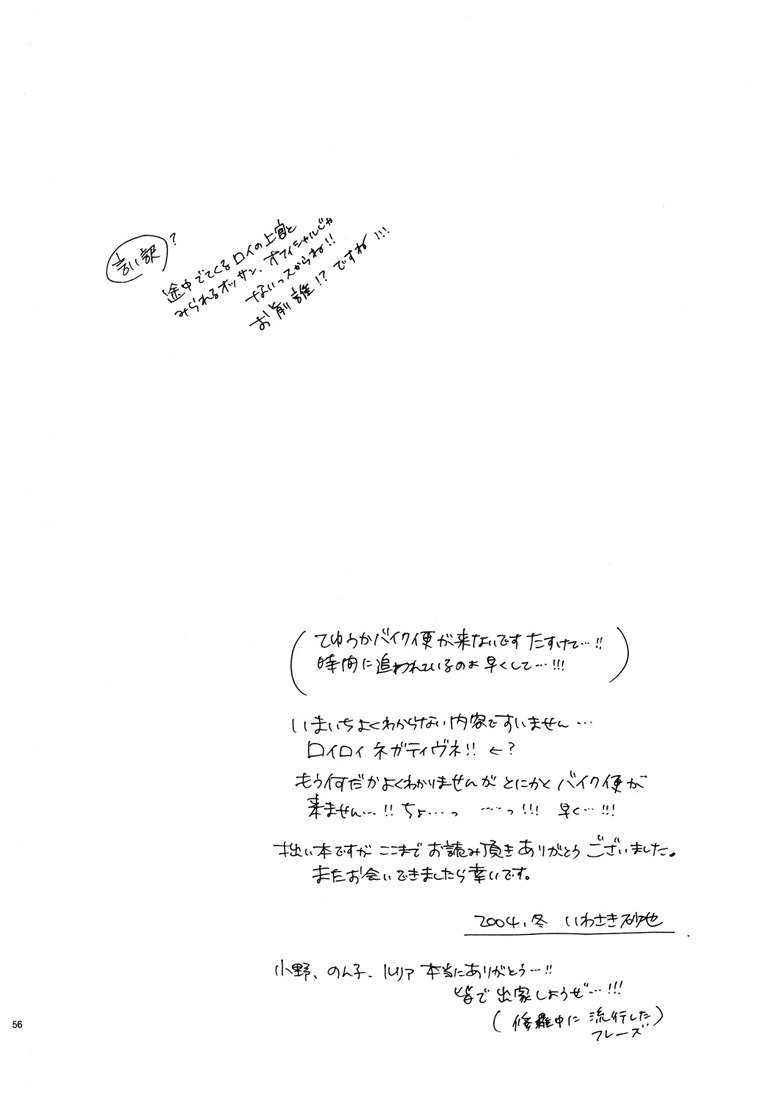 言い訳?
途中ででてくるロイの上官と
みられるオッサン、オフィシャルじゃ
ないっスからね!!
お前誰!?ですね!!!
(てゆうかバイク便が来ないです たすけて…!!
時間に追われているのよ 早くして…!!!)
いまいちよくわからない内容ですいません…
ロイロイ ネガティヴネ!! ←?
もう何だかよくわかりませんが とにかく バイク便が
来ません…!! ちょ…っ ……っ!!! 早く…!!!
拙い本ですが ここまで お読み頂き ありがとう ございました。
またお会いできましたら幸いです。
2004.冬 いわさき砂也
小野、のん子、ルリア 本当にありがとう…!!
皆で出家しようぜ…!!!
(修羅中に流行した
フレーズ)
56